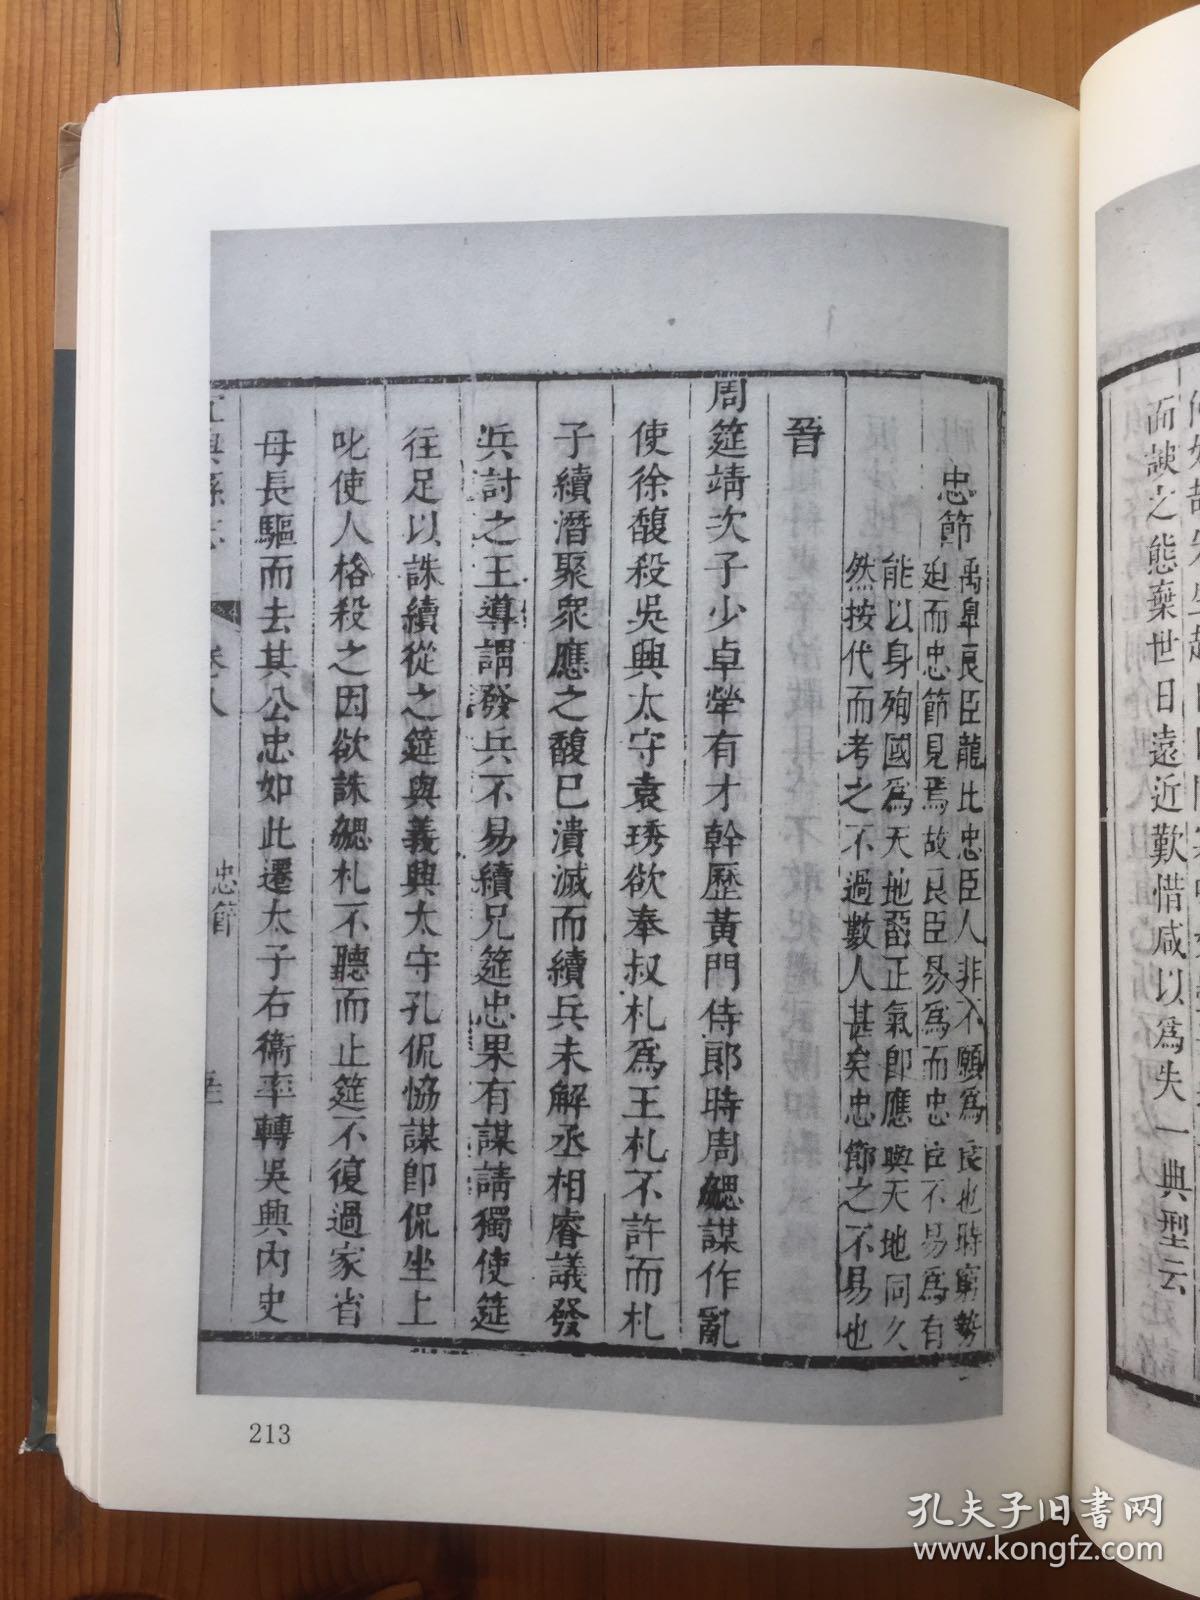 忠節
禹臯良臣龍比忠臣人非不願爲良也時窮勢
廹而忠節見焉故良臣易爲而忠臣不易爲有
能以身殉國爲天地畱正氣即應與天地同久
然按代而考之不過數人甚矣忠節之不易也
晉
周筵靖次子少卓犖有才幹歷黃門侍郎時周勰謀作亂
使徐馥殺吳興太守袁琇欲奉叔札爲王札不許而札
子續潛聚衆應之馥已潰滅而續兵未解丞相睿議發
兵討之王導謂發兵不易續兄筵忠果有謀請獨使筵
往足以誅續從之筵與義興太守孔侃恊謀即侃坐上
叱使人格殺之因欲誅勰札不聽而止筵不復過家省
母長驅而去其公忠如此遷太子右衞率轉吳興內史
興縣志
卷八
忠節
213
面諛之態棄世日遠近歎惜咸以爲失一典型云
孔夫子旧书网
www.kongfz.com